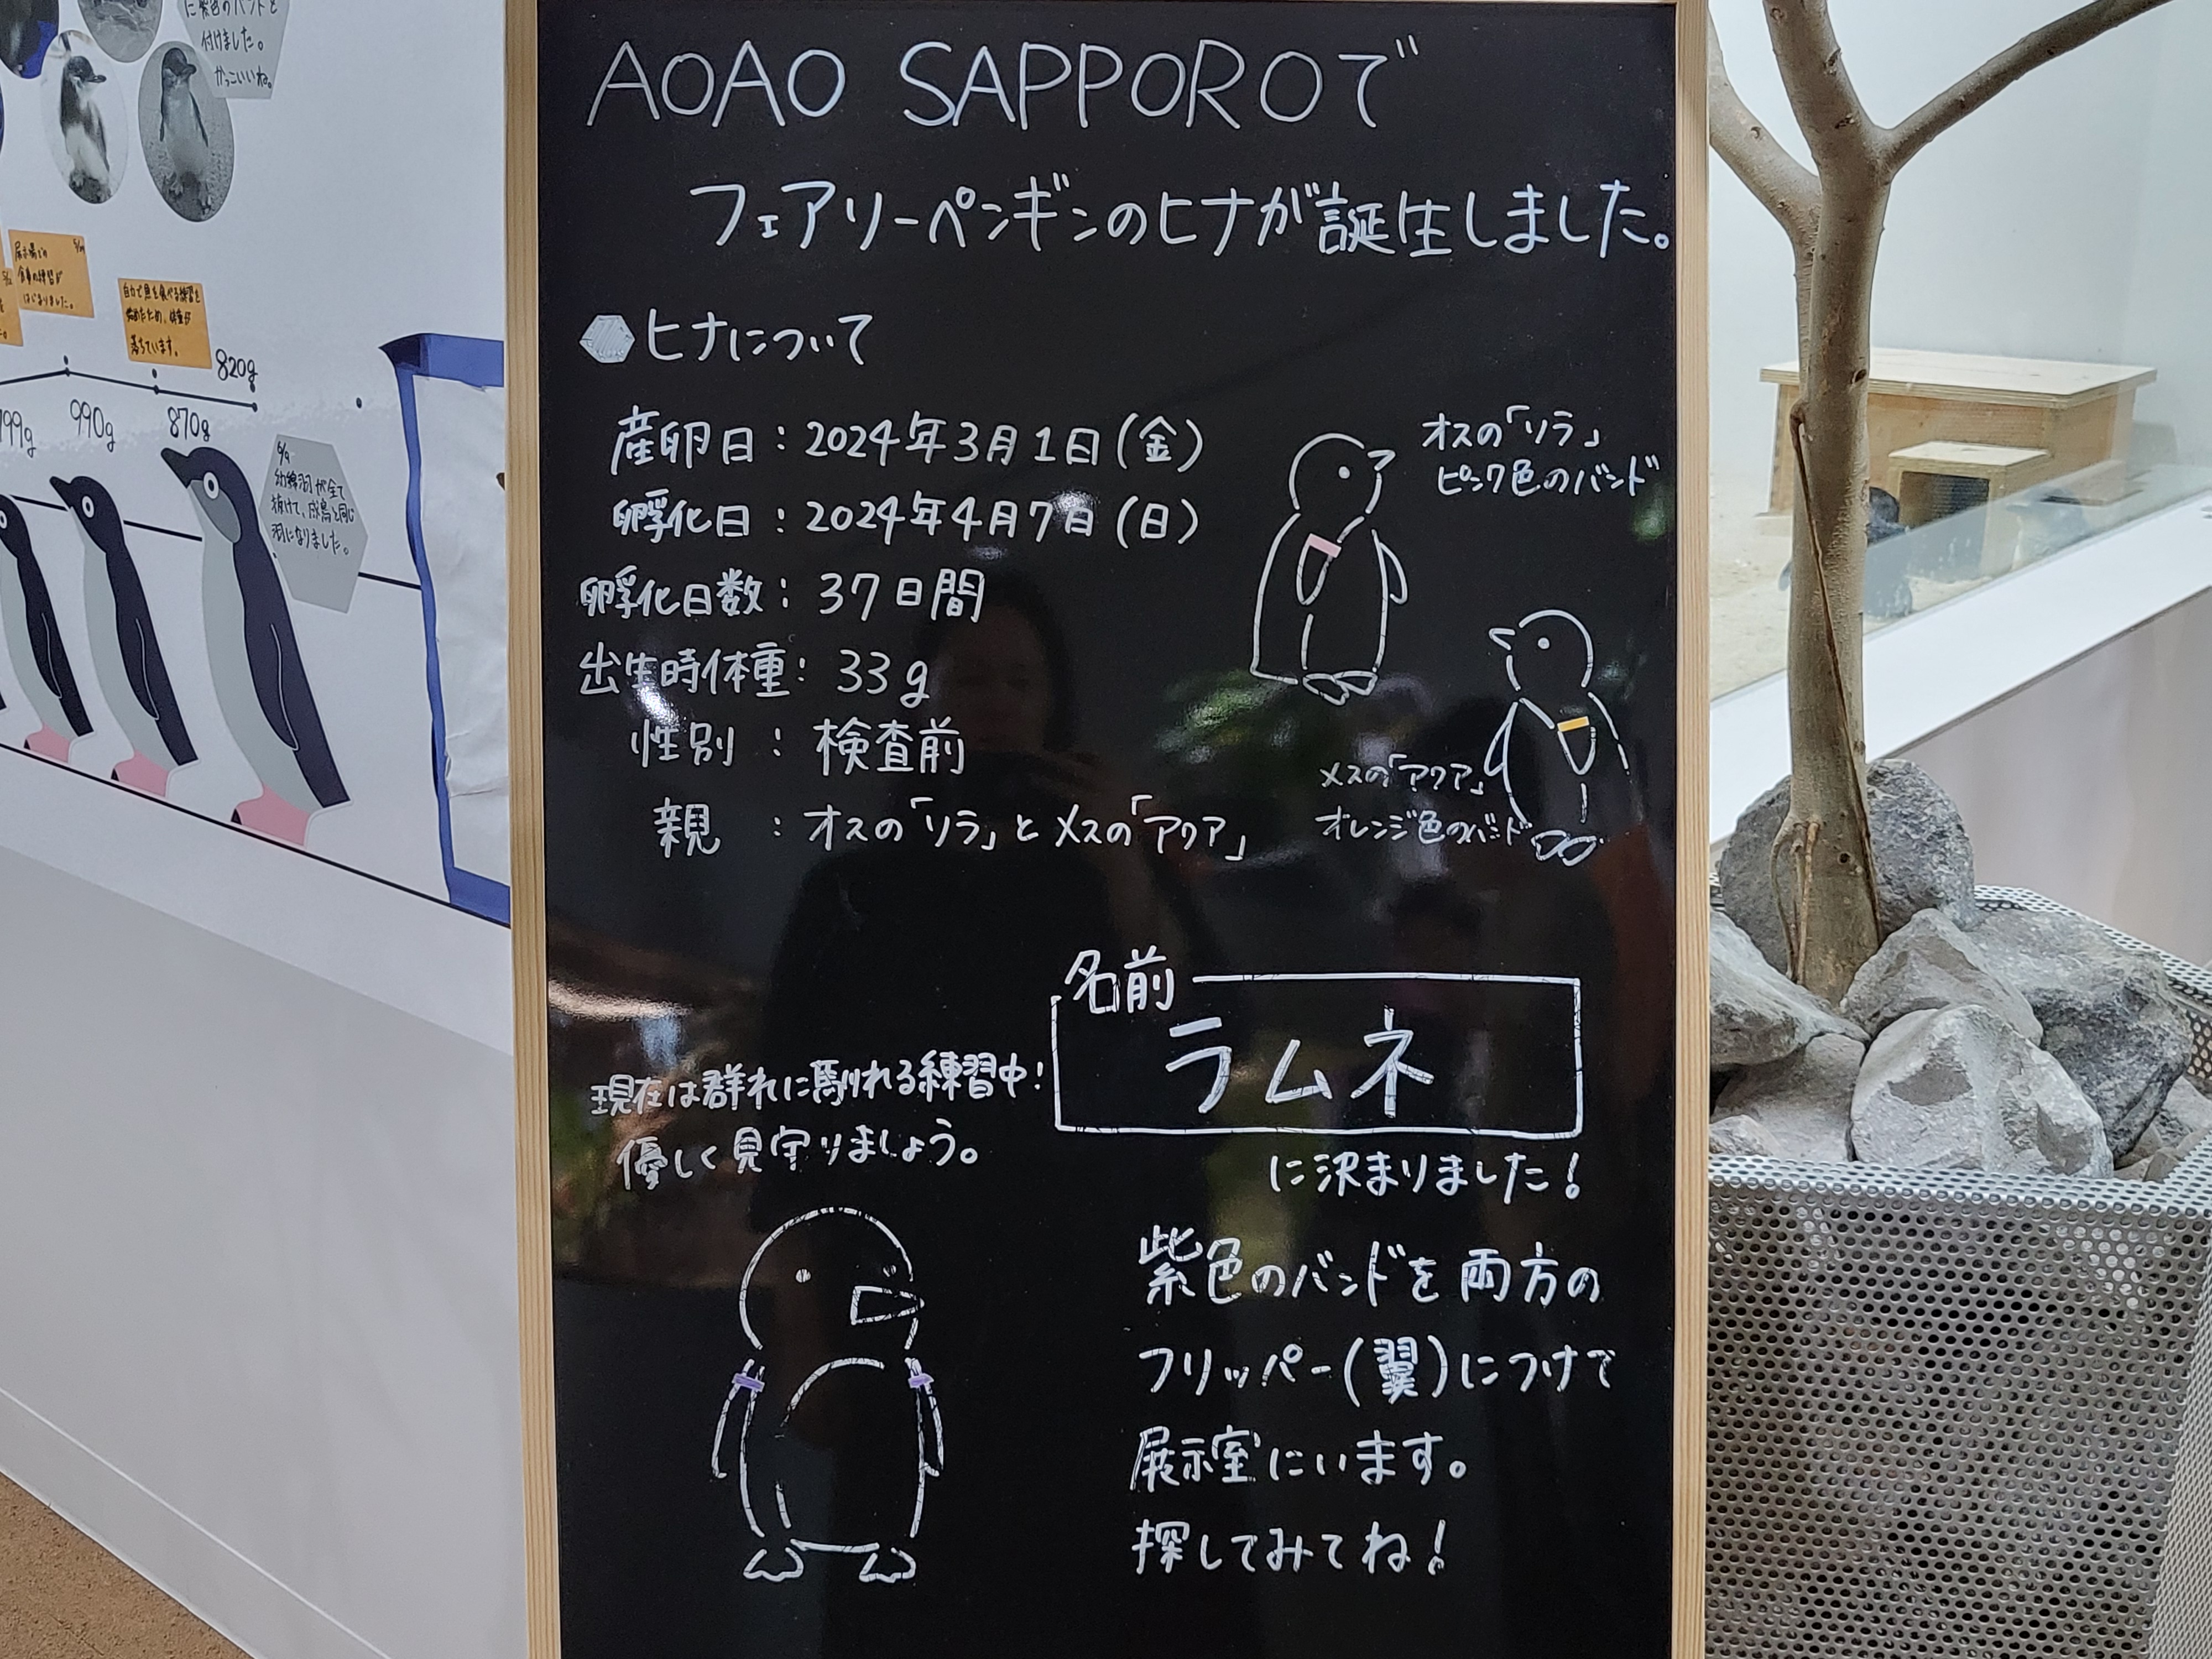 に紫色のバンドを
付けました。
かっこいいね。
展示場での
食事の練習が
はじまりました。
自力で魚を食べる練習を
始めたため、体重が
落ちています。
799g
990g
870g
820g
6/9
幼綿羽が全て
抜けて、成鳥と同じ
羽になりました。
AOAO SAPPOROで
フェアリーペンギンのヒナが誕生しました。
ヒナについて
産卵日:2024年3月1日(金)
孵化日:2024年4月7日(日)
孵化日数:37日間
出生時体重:33g
性別:検査前
親:オスの「ソラ」とメスの「アクア」
オスの「ソラ」
ピンク色のバンド
メスの「アクア」
オレンジ色のバンド
名前
ラムネ
に決まりました!
現在は群れに馴れる練習中!
優しく見守りましょう。
紫色のバンドを両方の
フリッパー(翼)につけて
展示室にいます。
探してみてね!